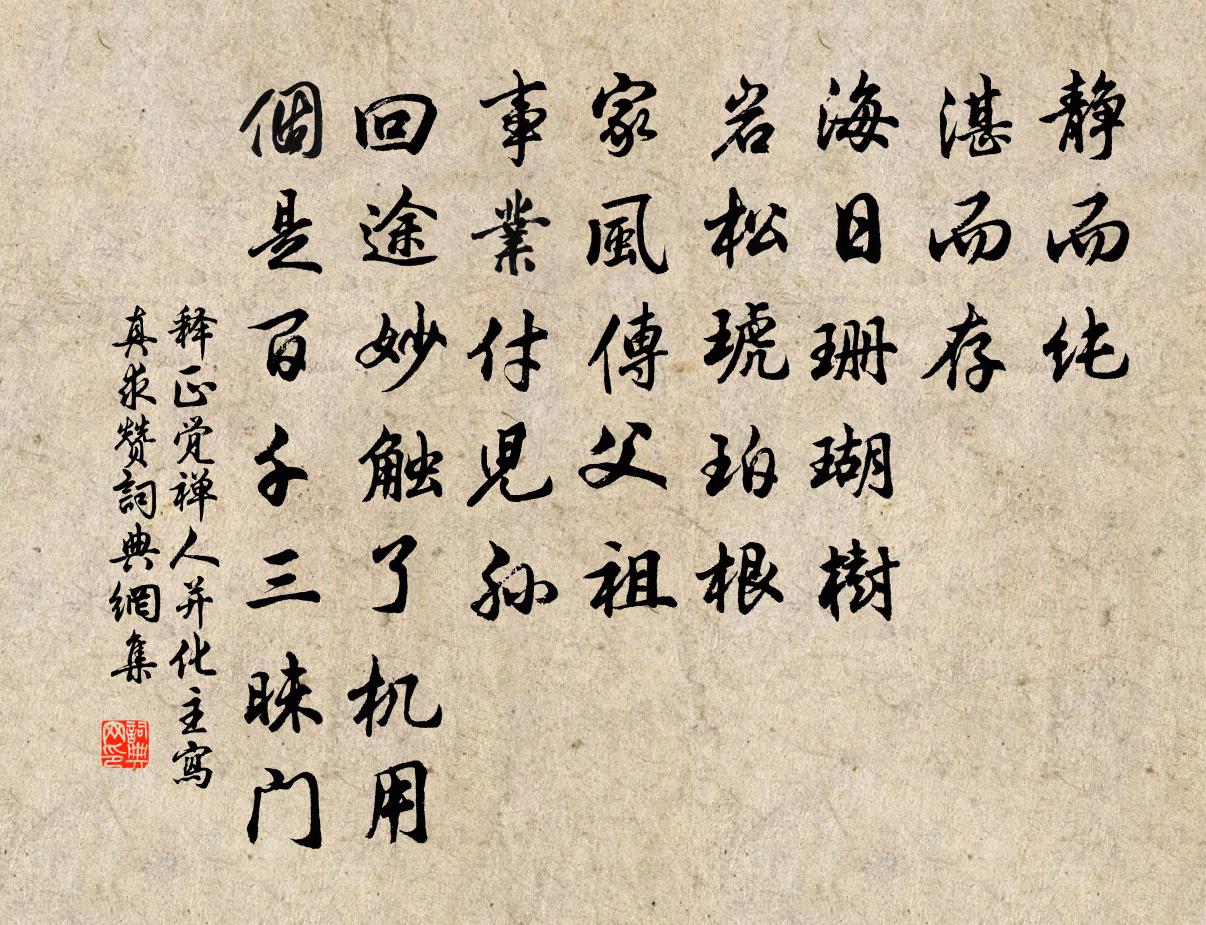 静而纯
湛而存
海日珊瑚樹
岩松琥珀根
家風傳父祖
事業付児孙
回途妙触了机用
個是百千三昧门
释正觉禅人并化主寫
真求赞詞典網集
詞典
网印